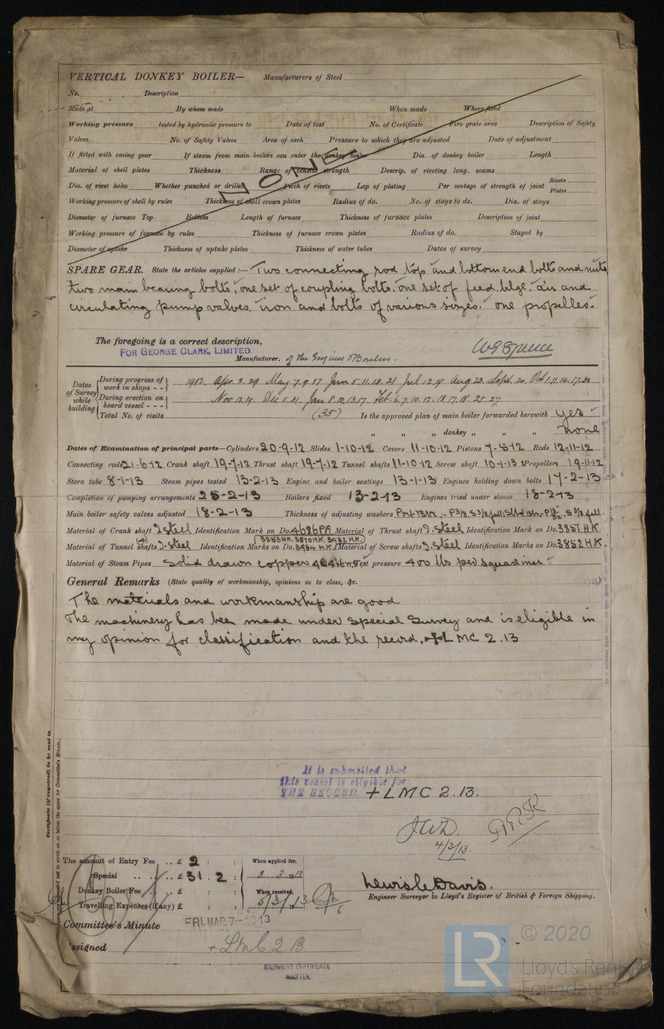 VERTICAL DONKEY BOILER— Manufacturers of Steel
No. Description
Made at By whom made When made Where fixed
Working pressure tested by hydraulic pressure to Date of test No. of Certificate Fire grate area Description of Safety
Valves No. of Safety Valves Area of each Pressure to which they are adjusted Date of adjustment
If fitted with easing gear If steam from main boilers can enter the donkey boiler Dia. of donkey boiler Length
Material of shell plates Thickness Range of tensile strength Descrip. of riveting long. seams
NONE
Dia. of rivet holes Whether punched or drilled Pitch of rivets Lap of plating Per centage of strength of joint Rivets Plates
Working pressure of shell by rules Thickness of shell crown plates Radius of do. No. of stays to do. Dia. of stays
Diameter of furnace Top Bottom Length of furnace Thickness of furnace plates Description of joint
Working pressure of furnace by rules Thickness of furnace crown plates Radius of do. Stayed by
Diameter of uptake Thickness of uptake plates Thickness of water tubes Dates of survey
SPARE GEAR. State the articles supplied:— Two connecting rod top and bottom end bolts and nuts
two main bearing bolts, one set of coupling bolts, one set of feed, bilge, air and
circulating pump valves, iron and bolts of various sizes. one propeller.
The foregoing is a correct description,
FOR GEORGE CLARK, LIMITED.
Manufacturer. of the Engines & Boilers.
Dates of Survey while building
During progress of work in shops - - 1912. Apr. 2. 29 May 7. 9. 17 Jun 5. 11. 18. 21 Jul 12. 19 Aug 23 Sept. 20. Oct 1. 11. 16. 17. 22
During erection on board vessel - - - Nov 12. 19. Dec 5. 31. Jan 8. 10. 13. 17. Feb 6. 7. 10. 12. 13. 17. 18. 25. 27
Total No. of visits (35) Is the approved plan of main boiler forwarded herewith Yes -
" " " donkey " " none
Dates of Examination of principal parts—Cylinders 20-9-12 Slides 1-10-12 Covers 11-10-12 Pistons 7-5-12 Rods 12-11-12
Connecting rods 21-6-12 Crank shaft 19-7-12 Thrust shaft 19-7-12 Tunnel shafts 11-10-12 Screw shaft 10-1-13 Propeller 19-11-12
Stern tube 8-1-13 Steam pipes tested 13-2-13 Engine and boiler seatings 13-1-13 Engines holding down bolts 17-2-13
Completion of pumping arrangements 25-2-13 Boilers fixed 13-2-13 Engines tried under steam 18-2-13
Main boiler safety valves adjusted 18-2-13 Thickness of adjusting washers
Material of Crank shaft I. Steel Identification Mark on Do. 4686PA Material of Thrust shaft I. Steel Identification Mark on Do. 3851 HK
Material of Tunnel shafts I. Steel Identification Marks on Do. Material of Screw shafts I. Steel Identification Marks on Do. 3852 HK.
Material of Steam Pipes Solid drawn copper Test pressure 400 lbs per square inch
General Remarks (State quality of workmanship, opinions as to class, &c.
The materials and workmanship are good
The machinery has been made under Special Survey and is eligible in
my opinion for classification and the record, +LMC 2.13
Certificate (if required) to be sent to
It is submitted that
this vessel is eligible for
THE RECORD. + LMC 2.13.
JWD.
4/3/13.
The amount of Entry Fee .. £ 2 : : When applied for,
Special .. .. £ 31 . 2 :
Donkey Boiler Fee .. .. £ : : When received,
Travelling Expenses (if any) £ : : 5/3/13
Lewis C Davis.
Engineer Surveyor to Lloyd's Register of British & Foreign Shipping.
Committee's Minute FRI. MAR. 7 - 1913
Assigned + LMC 2 13
MACHINERY CERTIFICATE
WRITTEN
LR
© 2020
Lloyd's Register
Foundation